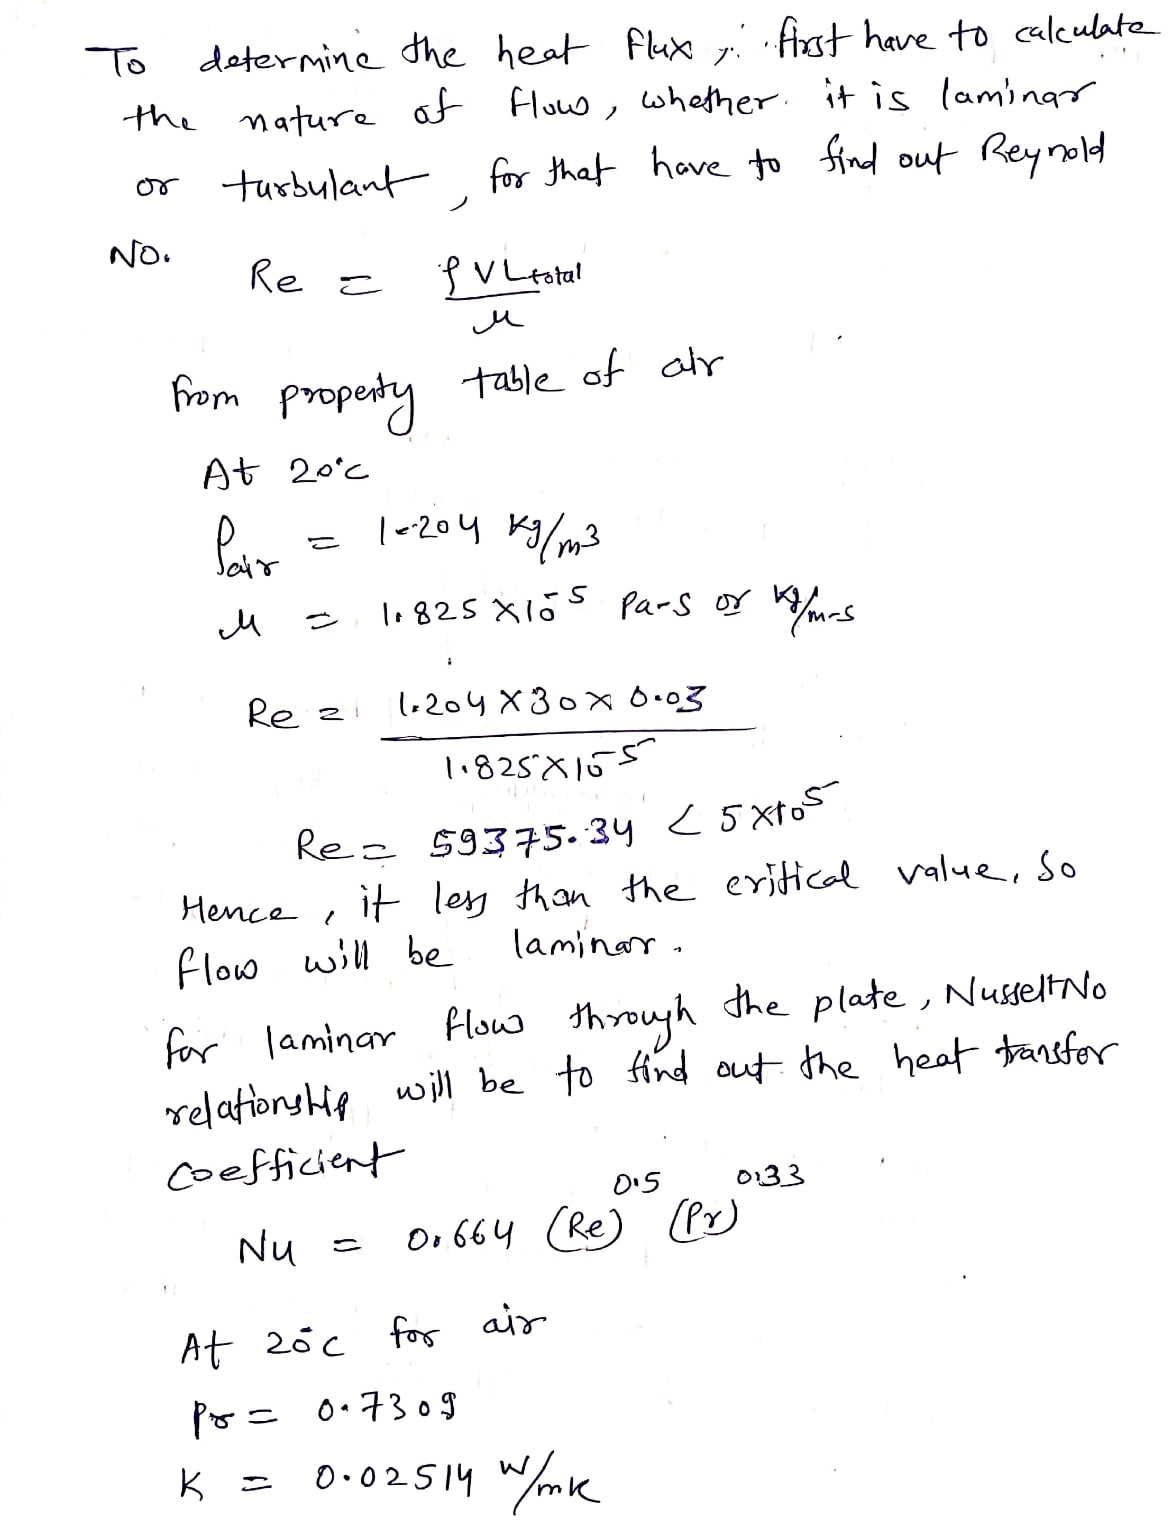 To determine the heat flux, first have to calculate
the nature of flow, whether it is laminar
or turbulant, for that have to find out Reynold
No.
Re = ρVLtotal
μ
from property table of air
At 20°c
ρair = 1.204 kg/m3
μ = 1.825 X10^-5 Pa-s or kg/m-s
Re = 1.204 X 30 X 0.03
1.825 X 10^-5
Re = 59375.34 < 5X10^5
Hence, it less than the critical value, so
flow will be laminar.
for laminar flow through the plate, Nusselt No
relationship will be to find out the heat transfer
coefficient
Nu = 0.664 (Re)^0.5 (Pr)^0.33
At 20°c for air
Pr = 0.7309
K = 0.02514 W/mK